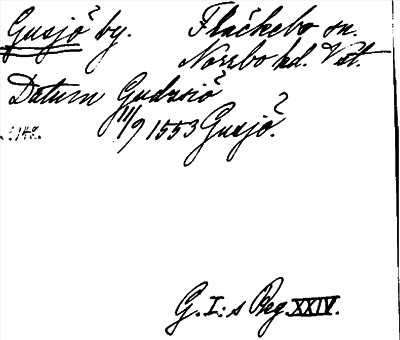 Gusjö by. Fläckebo sn.
Norrbo hd. Vst.
Datum Gudasiö
11/9 1553 Gusjö.
G. I:s Reg. XXIV.